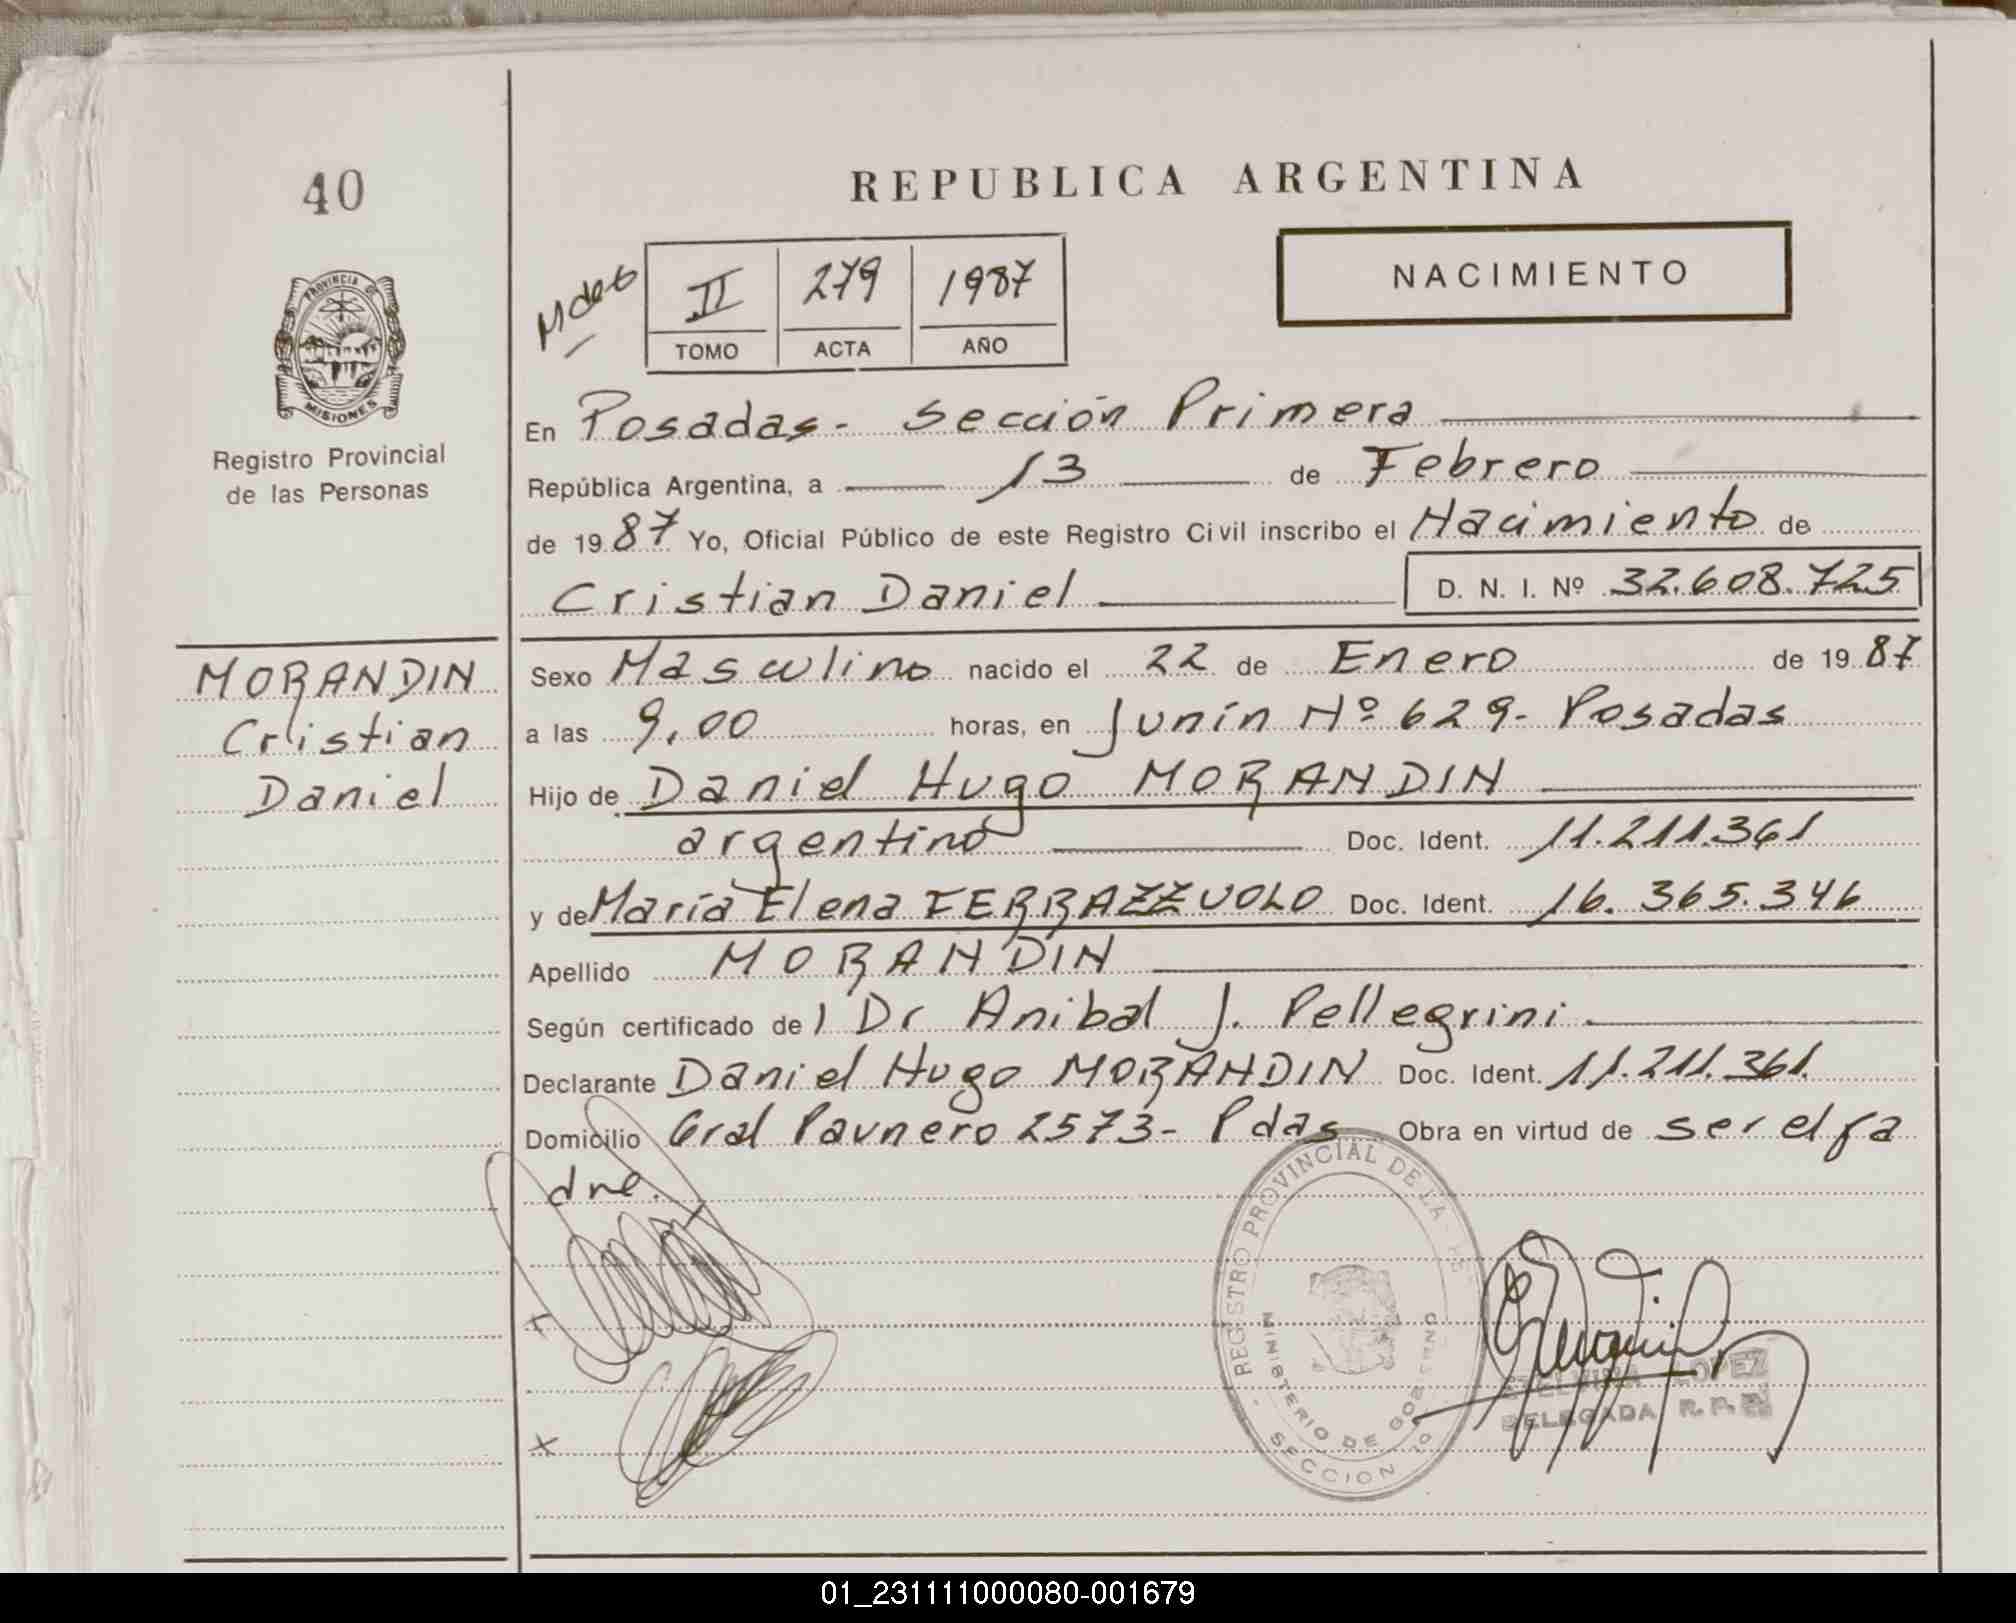 40
REPUBLICA ARGENTINA
II 279 1987
TOMO ACTA AÑO
NACIMIENTO
PROVINCIA DE
MISIONES
Registro Provincial
de las Personas
En Posadas - Sección Primera
República Argentina, a 13 de Febrero
de 1987 Yo, Oficial Público de este Registro Civil inscribo el Nacimiento de
Cristian Daniel D. N. I. Nº 32.608.725
MORANDIN
Cristian
Daniel
Sexo Masculino nacido el 22 de Enero de 1987
a las 9,00 horas, en Junín Nº 629 - Posadas
Hijo de Daniel Hugo MORANDIN
argentino Doc. Ident. 11.211.361
y de María Elena FERRAZZUOLO Doc. Ident. 16.365.346
Apellido MORANDIN
Según certificado del Dr Anibal J. Pellegrini
Declarante Daniel Hugo MORANDIN Doc. Ident. 11.211.361.
Domicilio Gral Paunero 2573 - Pdas Obra en virtud de ser el pa
dre.
REGISTRO PROVINCIAL DE LA
MINISTERIO DE GOBIERNO
SECCION 1º
LOPEZ
DELEGADA R. P. P.
01_231111000080-001679